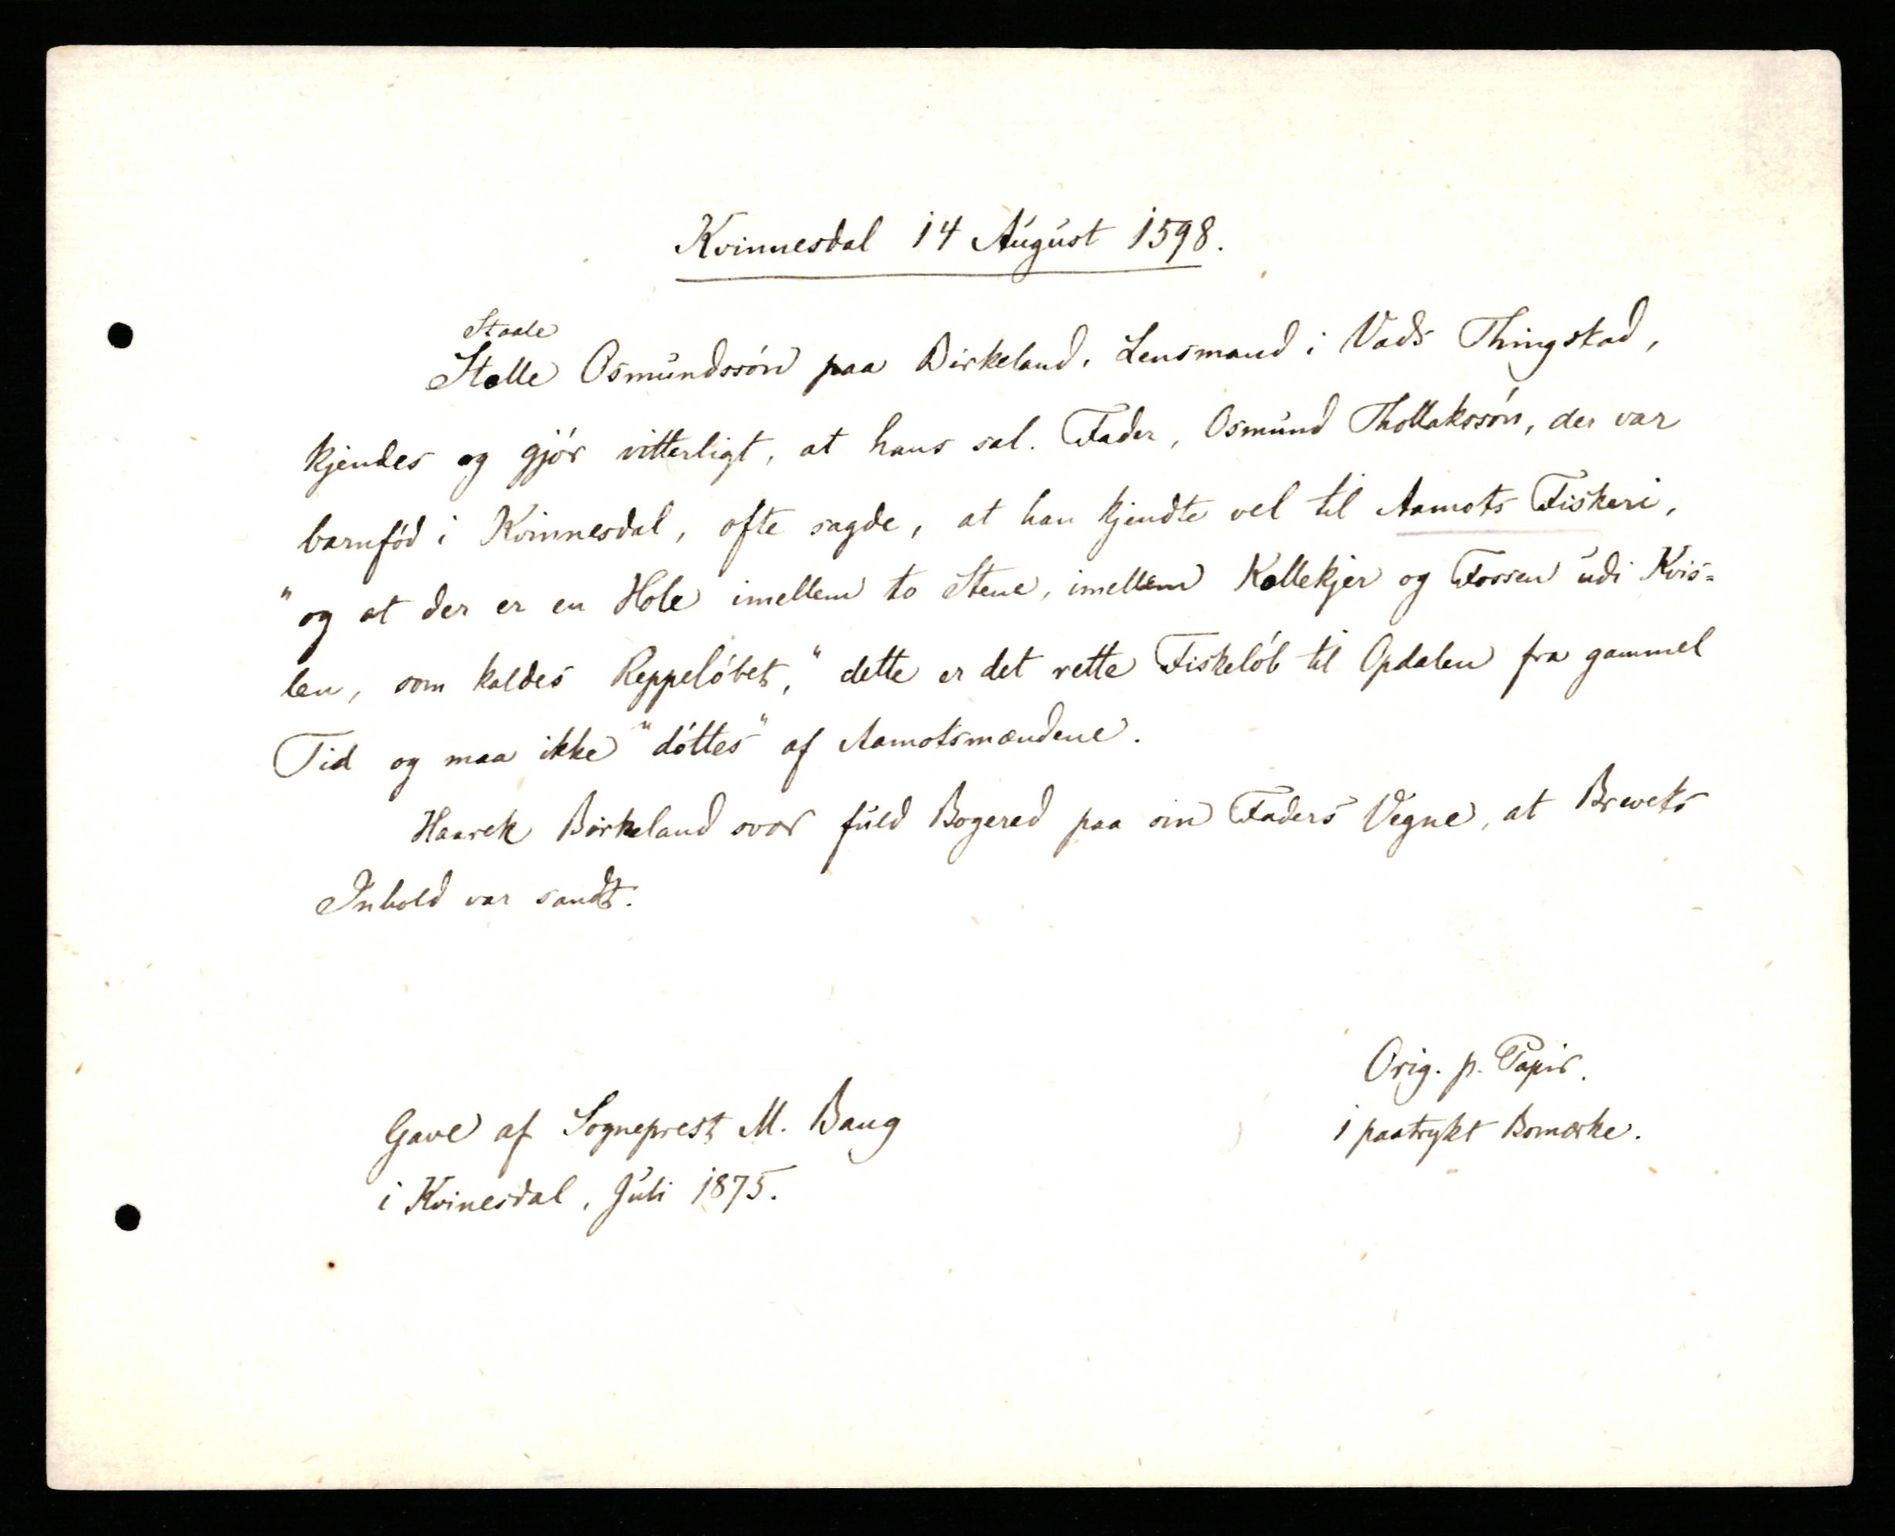 Kvinnesdal 14 August 1598.
Staale
Stalle Osmundssön paa Birkeland, Lensmand i Vads Thingstad,
kjendes og gjör vitterligt, at hans sal. Fader, Osmund Thollakssön, der var
barnföd i Kvinnesdal, ofte sagde, at han kjendte vel til Aamots Fiskeri,
"og at der er en Hole imellem to Stene, imellem Kollekjer og Fossen udi Kvis=
len, som kaldes Reppelöbet," dette er det rette Fiskelöb til Opdalen fra gammel
Tid og maa ikke "döttes" af Aamotsmændene.
Haarek Birkeland svor fuld Bogered paa sin Faders Vegne, at Brevets
Inhold var sandt.
Orig. p. Papir.
1 paatrykt Bomærke.
Gave af Sogneprest M. Baug
i Kvinesdal, Juli 1875.